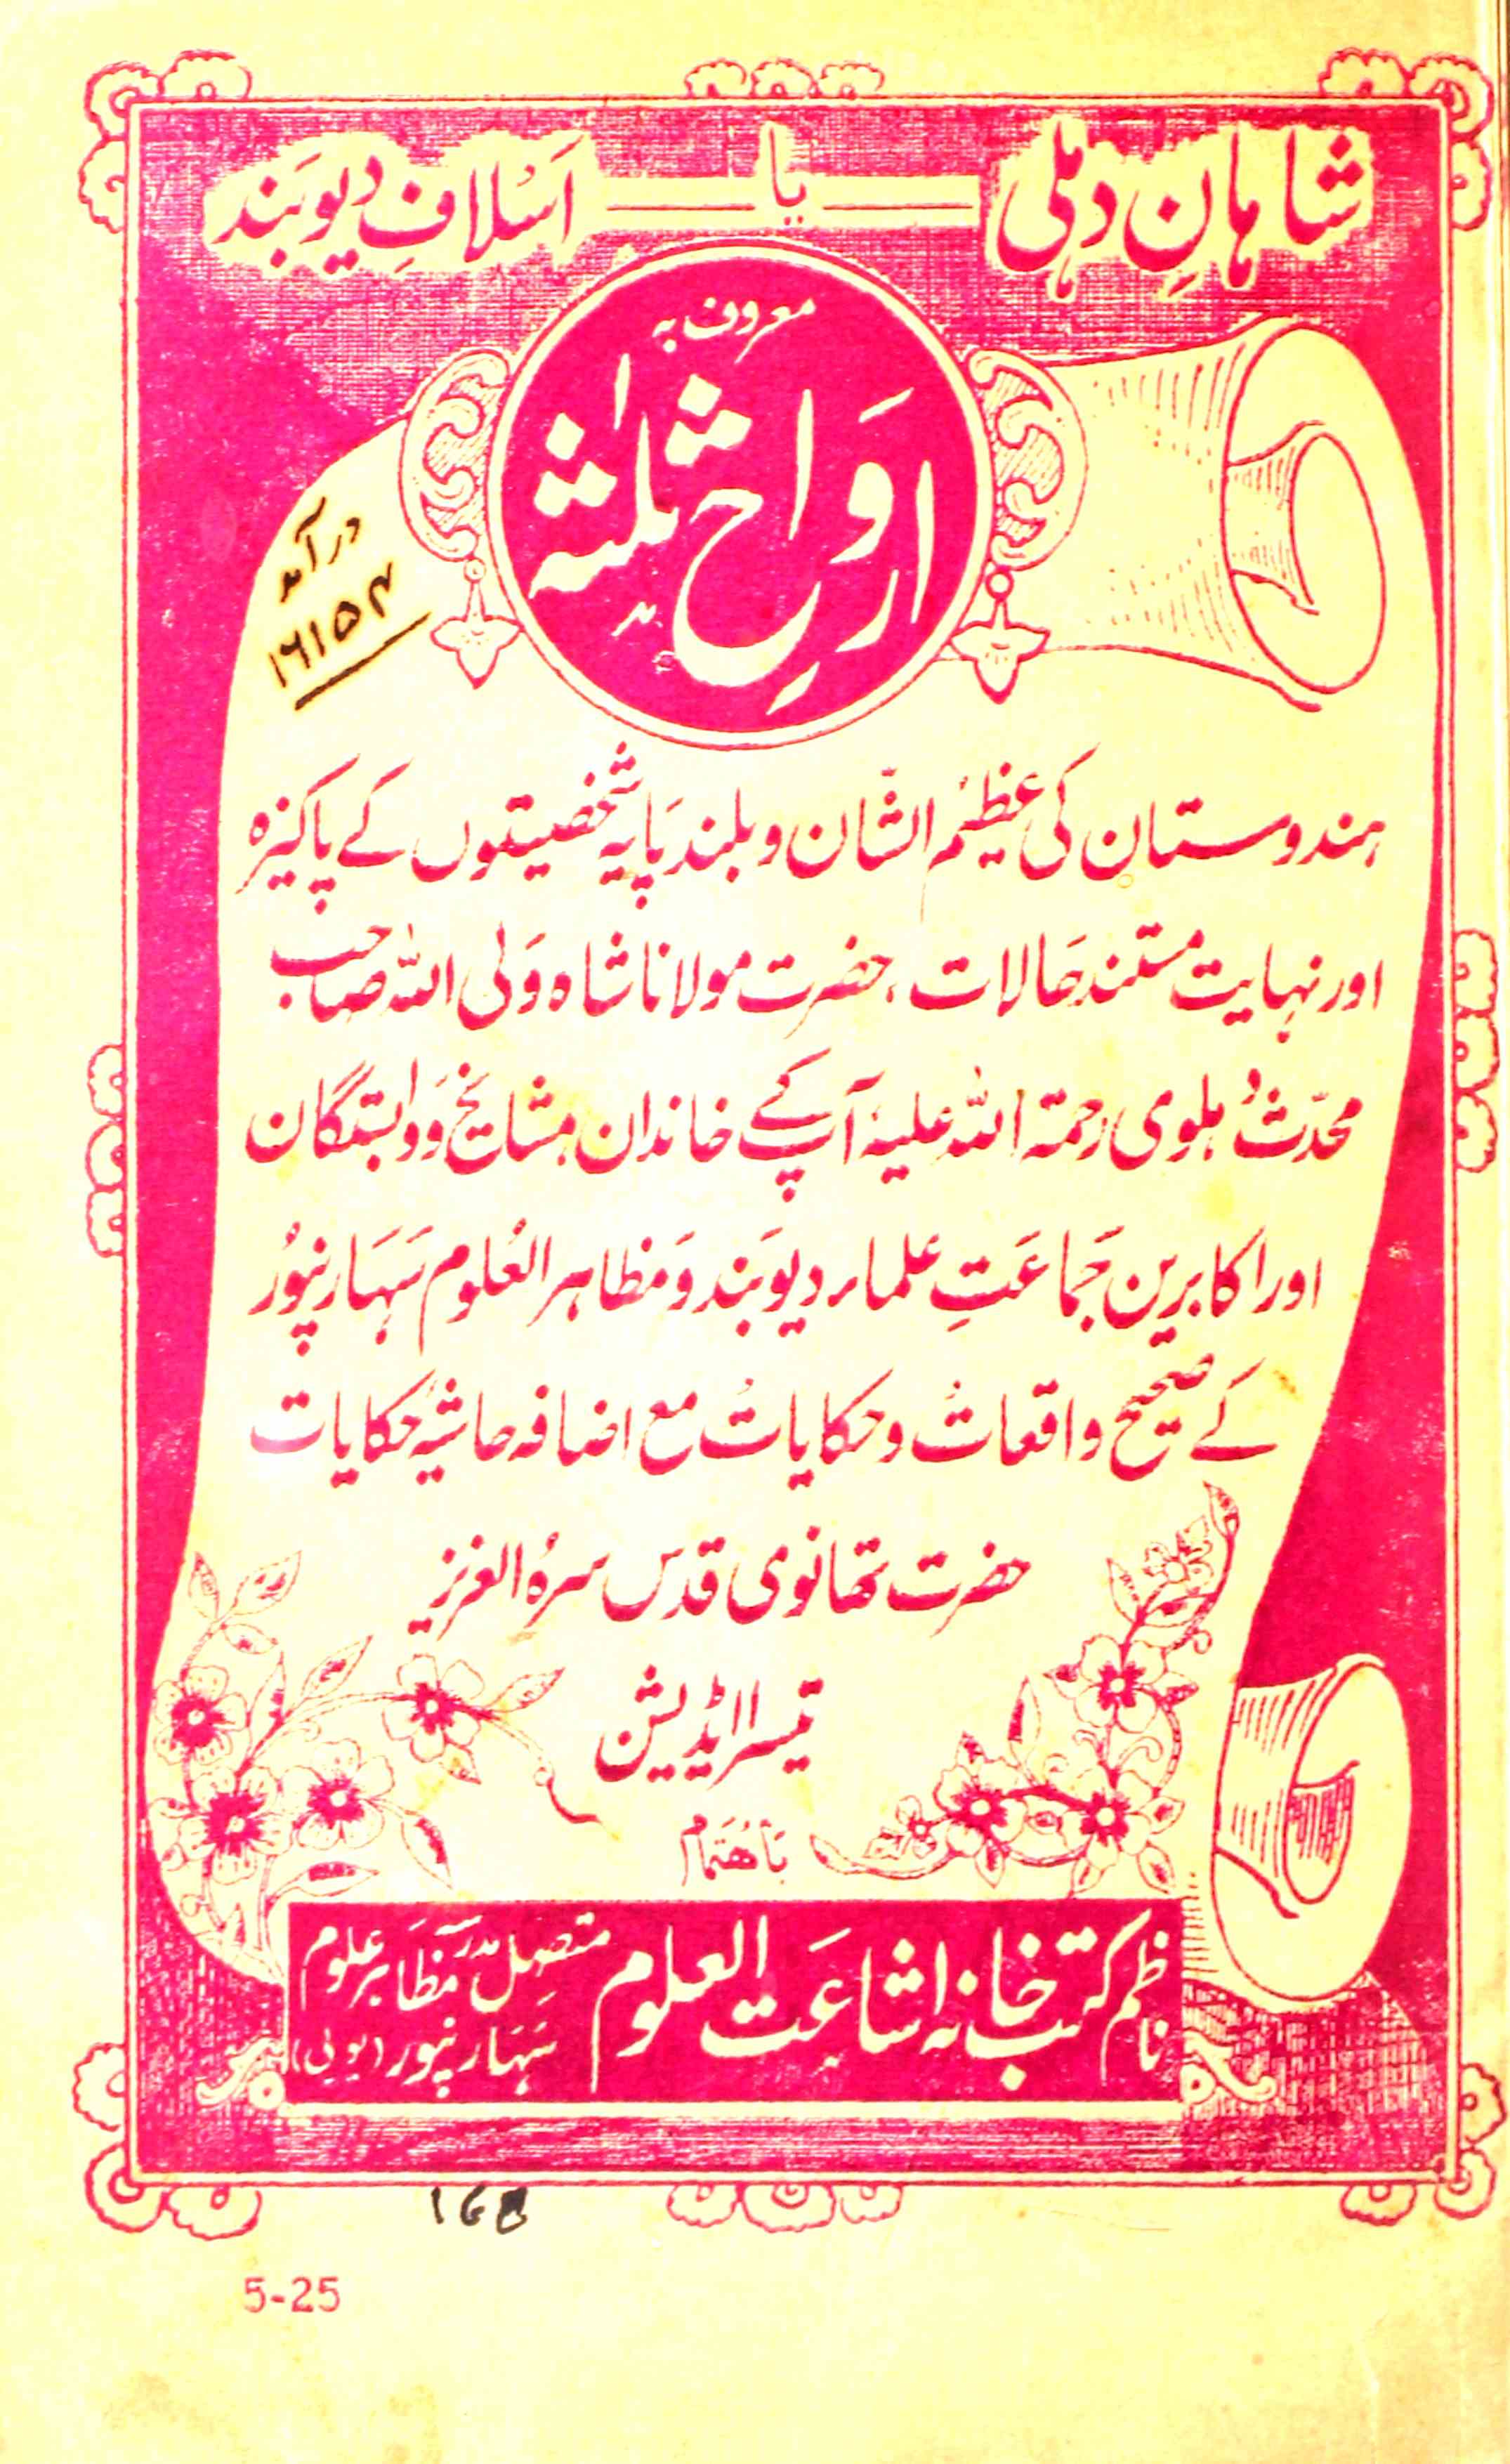 شاہانِ دہلی — یا — اَسْلافِ دیوبَند
معروف بہ
اَرْوَاحِ ثلٰثہ
درآمد
۱۶۱۵۴
ہندوستان کی عظیم الشّان و بلند پایہ شخصیتوں کے پاکیزہ
اور نہایت مستند حالات، حضرت مولانا شاہ ولی اللہ صاحب
محدّث دہلوی رحمۃ اللہ علیہ آپ کے خاندان مشائخ و وابستگان
اور اکابرین جَماعَتِ علماء دیوبَند و مَظاہر العُلوم سَہَارنپُور
کے صحیح واقعات و حکایات مع اضافہ حاشیہ حکایات
حضرت تھانوی قدس سرہٗ العزیز
تیسرا ایڈیشن
باھتمام
ناظم کتب خانہ اشاعَت العلوم متصل مدرسہ مظاہر علوم سَہَارنپور (یوپی)
168
5-25